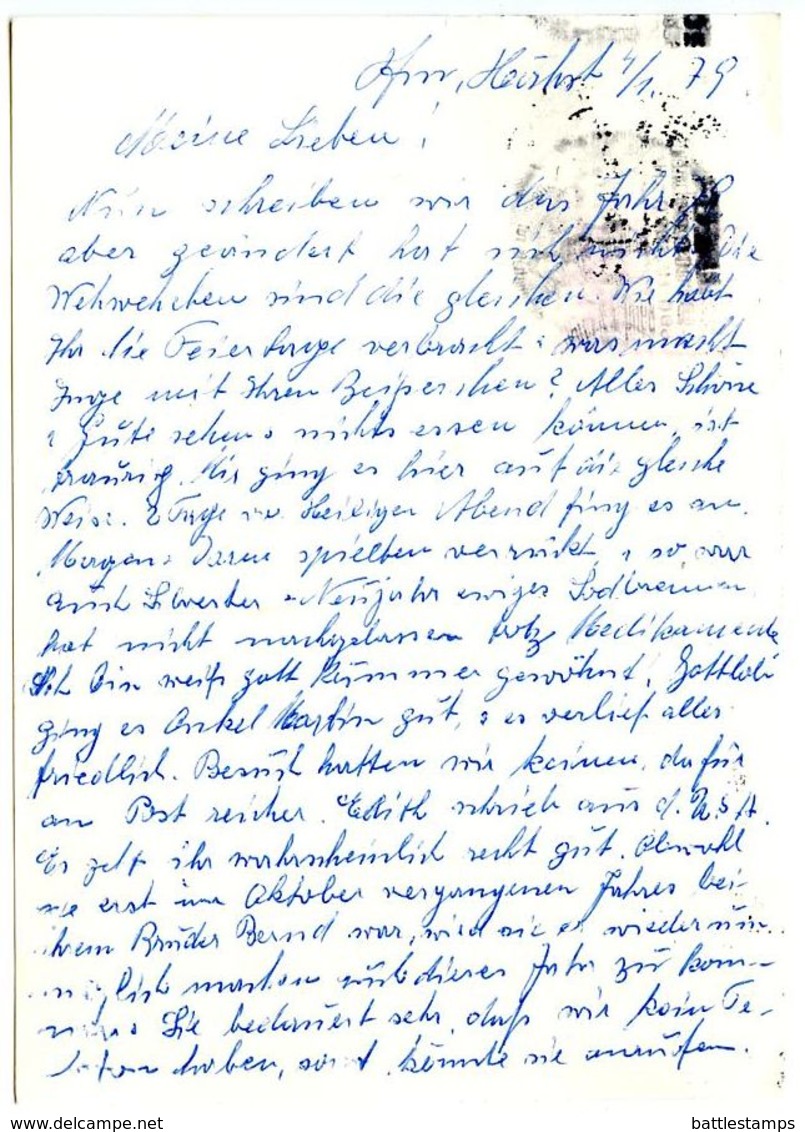 Ffm, Höchst 4/1. 79.
Meine Lieben!
Nun schreiben wir das Jahr 79
aber geändert hat sich nichts die
Wehwehchen sind die gleichen. Wie habt
Ihr die Feiertage verbracht u was macht
Inge mit Ihren Beißerchen? Alles Schöne
u Gute sehen u nichts essen können, ist
traurig. Mir ging es hier auf die gleiche
Weise. 2 Tage vor Heiligen Abend fing es an.
Magen u Darm spielten verrückt, u so war
auch Silvester - Neujahr ewiges Sodbrennen,
hat nicht nachgelassen trotz Medikamente
Ich bin weiß Gott Kummer gewöhnt! Gottlob
ging es Onkel Martin gut, u es verlief alles
friedlich. Besuch hatten wir keinen, dafür
an Post reicher. Edith schrieb aus d. USA.
Es geht ihr wahrscheinlich recht gut. Obwohl
sie erst im Oktober vergangenen Jahres bei
ihrem Bruder Bernd war, wird sie es wiederum
möglich machen auch dieses Jahr zu kom-
men. Sie bedauert sehr, daß wir kein Te-
lefon haben, sonst könnte sie anrufen.
battlestamps